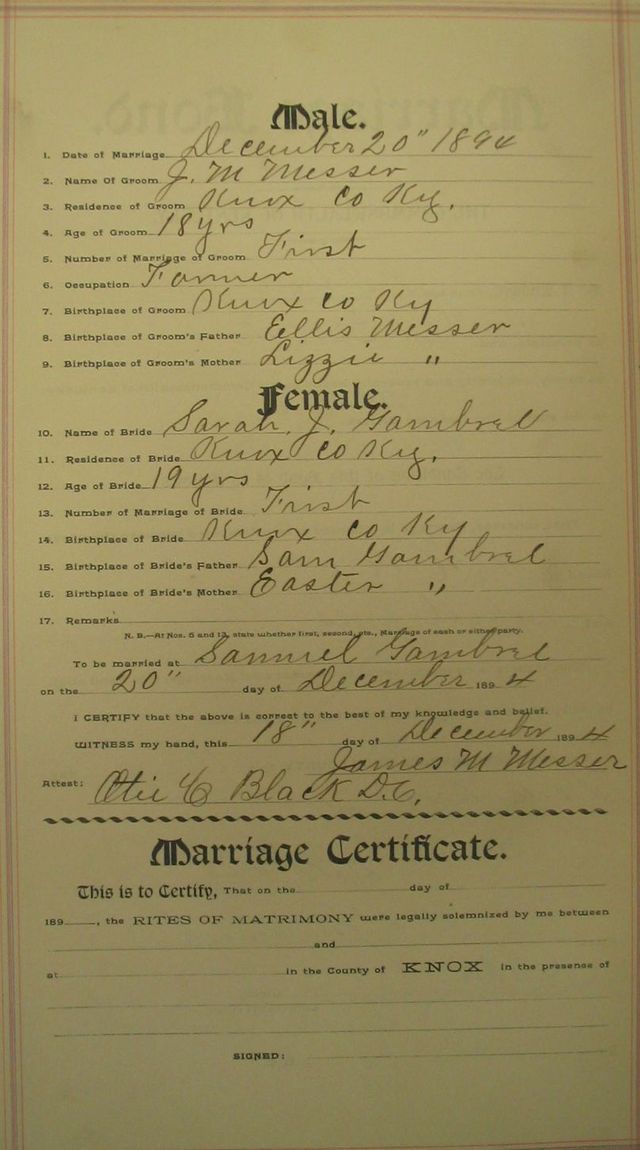 Male.
1. Date of Marriage December 20" 1894
2. Name Of Groom J. M Messer
3. Residence of Groom Knox Co Ky.
4. Age of Groom 18 yrs
5. Number of Marriage of Groom First
6. Occupation Farmer
7. Birthplace of Groom Knox co Ky
8. Birthplace of Groom's Father Eellis Messer
9. Birthplace of Groom's Mother Lizzie "
Female.
10. Name of Bride Sarah. J. Gambrel
11. Residence of Bride Knox Co Ky.
12. Age of Bride 19 yrs
13. Number of Marriage of Bride Frist
14. Birthplace of Bride Knox Co Ky
15. Birthplace of Bride's Father Sam Gambrel
16. Birthplace of Bride's Mother Easter "
17. Remarks
N. B.—At Nos. 5 and 13, state whether first, second, etc., Marriage of each or either party.
To be married at Samuel Gambrel
on the 20" day of December 1894
I CERTIFY that the above is correct to the best of my knowledge and belief.
WITNESS my hand, this 18" day of December 1894
James M Messer
Attest: Otie C Black D.C.
Marriage Certificate.
This is to Certify, That on the day of
189 , the RITES OF MATRIMONY were legally solemnized by me between
and
at in the County of KNOX in the presence of
SIGNED: